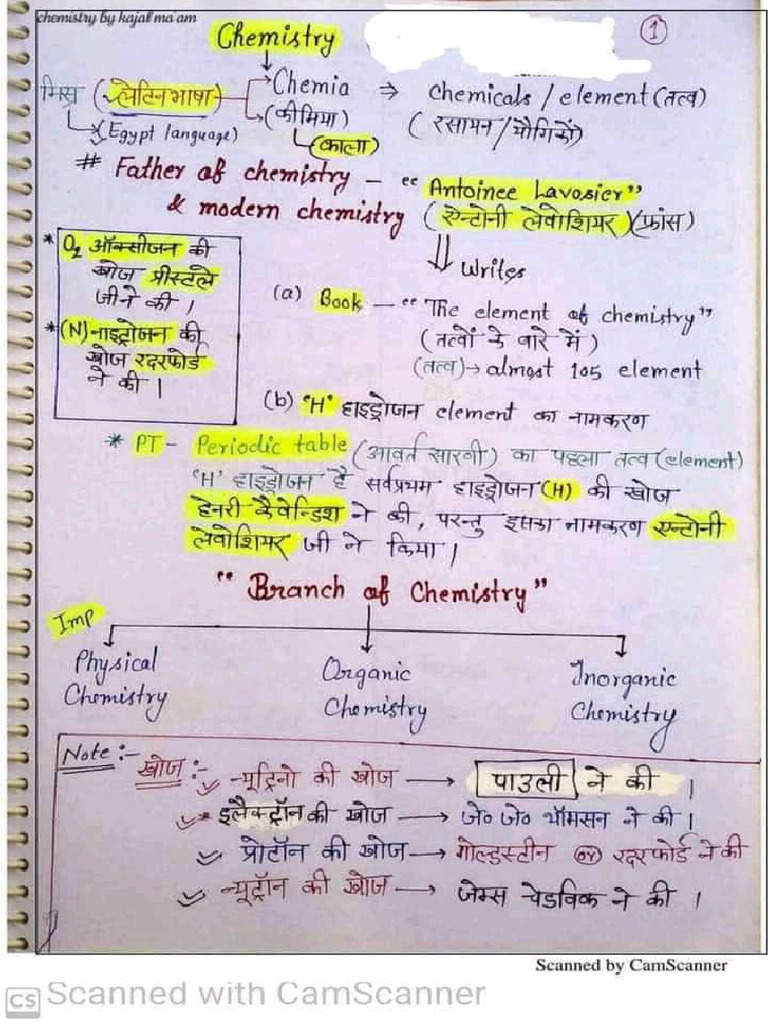 chemistry by kajal ma'am
Chemistry
1
मिस्र (लेटिन भाषा) Chemia ⇒ chemicals / element (तत्व)
(Egypt language) (कीमिया) (रसायन/यौगिकों)
(काला)
# Father of chemistry – “Antoinee Lavosier”
& modern chemistry (एन्टोनी लेवोशियर)(फ्रांस)
⇓ Writes
* O₂ ऑक्सीजन की
खोज प्रीस्टले
जी ने की ।
* (N) नाइट्रोजन की
खोज रदरफोर्ड
ने की ।
(a) Book – “The element of chemistry”
(तत्वों के बारे में)
(तत्व) → almost 105 element
(b) 'H' हाइड्रोजन element का नामकरण
* PT – Periodic table (आवर्त सारणी) का पहला तत्व (element)
'H' हाइड्रोजन है सर्वप्रथम हाइड्रोजन (H) की खोज
हेनरी कैवेन्डिश ने की, परन्तु इसका नामकरण एन्टोनी
लेवोशियर जी ने किया ।
“Branch of Chemistry”
Imp
Physical Chemistry
Organic Chemistry
Inorganic Chemistry
Note :–
खोज :– न्यूट्रिनो की खोज → पाउली ने की ।
* इलैक्ट्रॉन की खोज → जे० जे० थॉमसन ने की ।
प्रोटॉन की खोज → गोल्डस्टीन or रदरफोर्ड ने की
न्यूट्रॉन की खोज → जेम्स चेडविक ने की ।
Scanned by CamScanner
CS Scanned with CamScanner